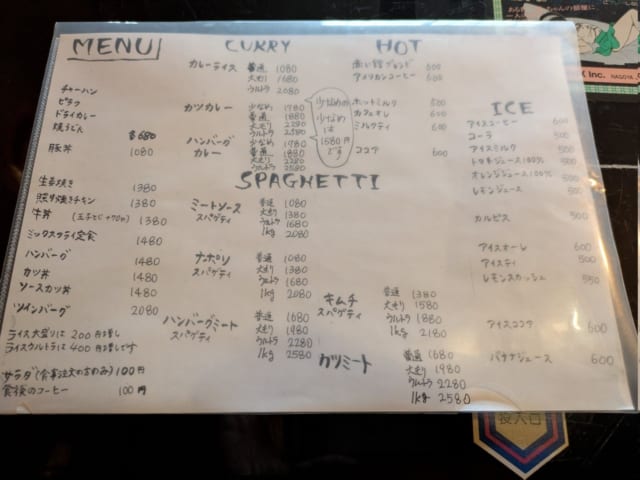 MENU
チャーハン
ピラフ
ドライカレー
焼うどん 各680
豚丼 1080
生姜焼き 1380
照り焼きチキン 1380
牛丼 (玉子とじ+70円) 1380
ミックスフライ定食 1480
ハンバーグ 1480
カツ丼 1480
ソースカツ丼 1480
ツインバーグ 2080
ライス大盛りは 200円増し
ライスウルトラは 400円増しです
サラダ(食事注文の方のみ)100円
食後のコーヒー 100円
CURRY
カレーライス 普通 1080
大モリ 1680
ウルトラ 2080
カツカレー 少なめ 1780
普通 1880
大モリ 2280
ウルトラ 2580
ハンバーグ 少なめ 1780
カレー 普通 1880
大モリ 2280
ウルトラ 2580
少なめの
少なめ
は
1580円
です
SPAGHETTI
ミートソース 普通 1080
スパゲティ 大モリ 1380
ウルトラ 1680
1kg 2080
ナポリ 普通 1080
スパゲティ 大モリ 1380
ウルトラ 1680
1kg 2080
ハンバーグミート 普通 1680
スパゲティ 大モリ 1980
ウルトラ 2280
1kg 2580
キムチ 普通 1380
スパゲティ 大モリ 1580
ウルトラ 1880
1kg 2180
カツミート 普通 1680
大モリ 1980
ウルトラ 2280
1kg 2580
HOT
ブレンド 600
アメリカンコーヒー 600
ホットミルク 600
カフェオレ 600
ミルクティ 600
ココア 600
ICE
アイスコーヒー 600
コーラ 500
アイスミルク 500
トマトジュース100% 500
オレンジジュース100% 500
レモンジュース 500
カルピス 500
アイスオーレ 600
アイスティ 500
レモンスカッシュ 550
アイスココア 600
バナナジュース 600
Inc. NAGOYA